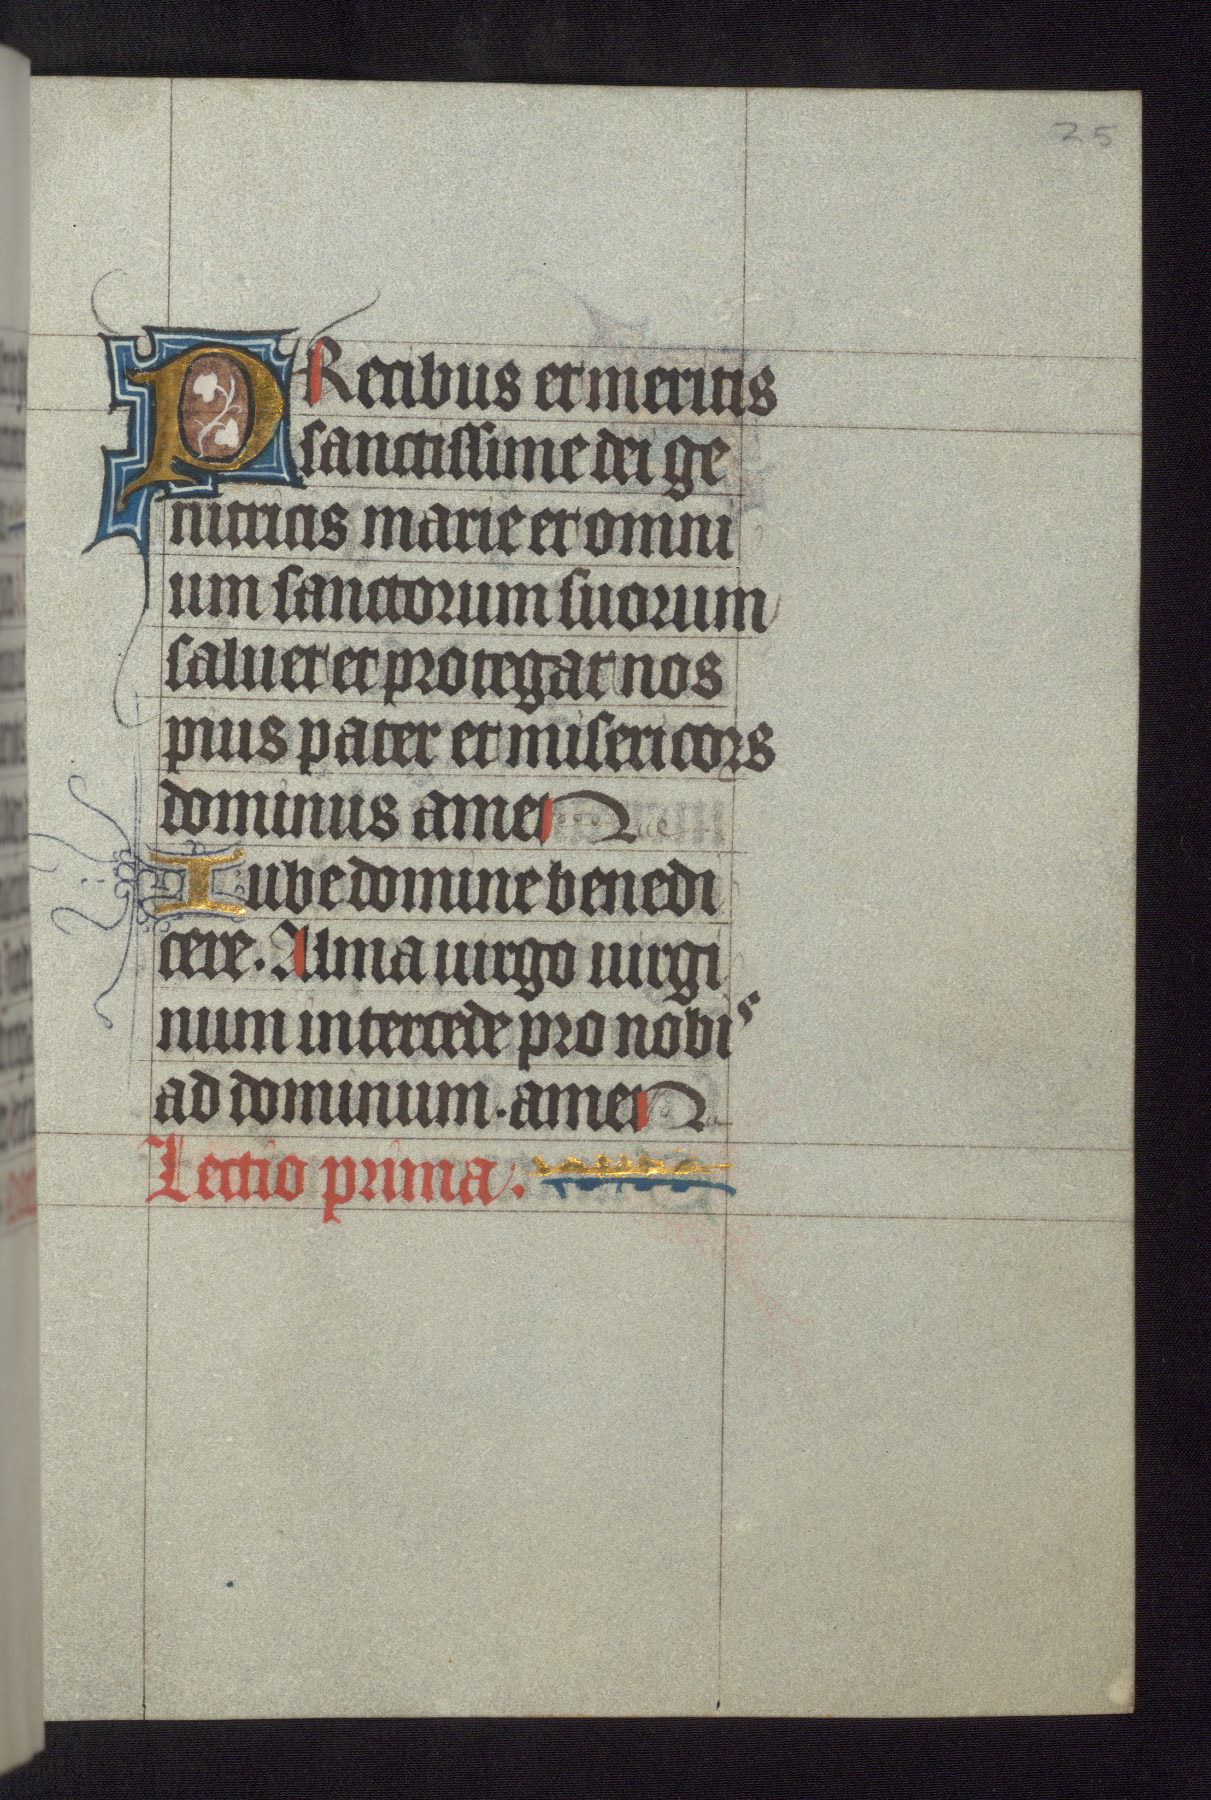 25
PRecibus et meritis
sanctissime dei ge
nitricis marie et omni
um sanctorum suorum
saluet et protegat nos
pius pater et misericors
dominus amen
Iube domine benedi
cere. Alma uirgo uirgi
num intercede pro nobis
ad dominum. amen
Lectio prima.